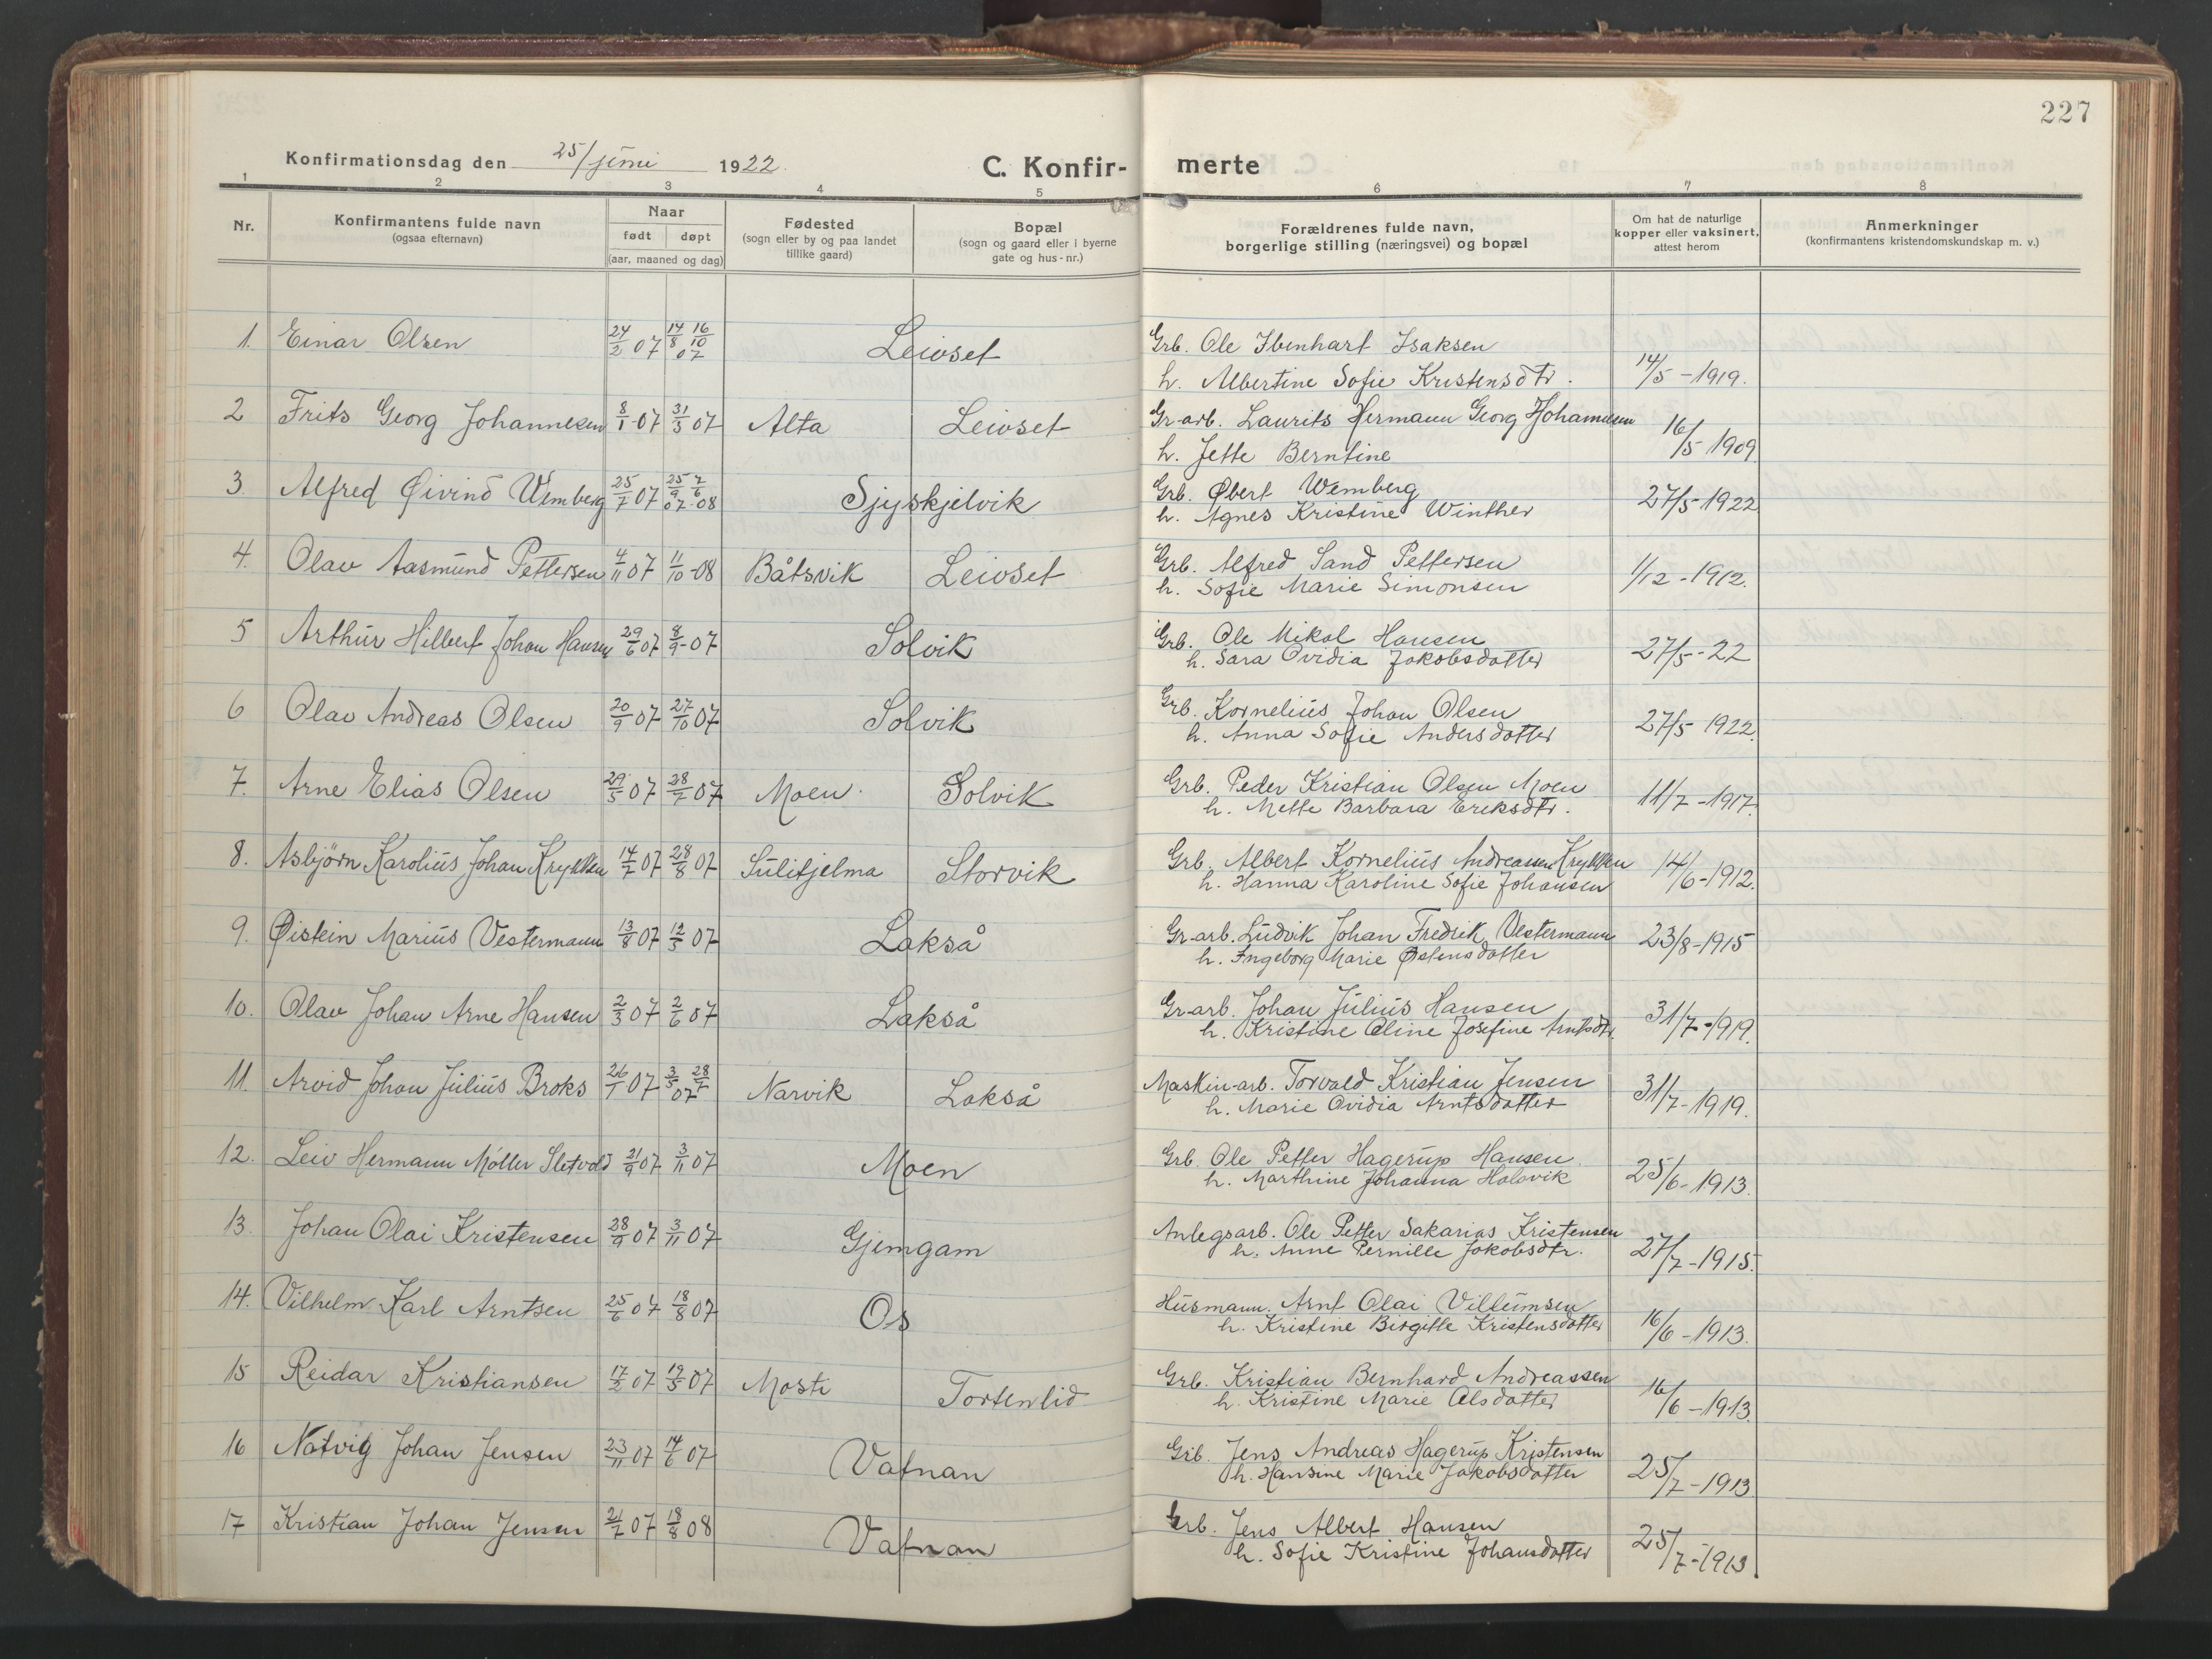 227
Konfirmationsdag den 25/juni 1922.
C. Konfir- merte
1 2 3 4 5 6 7 8
Nr.
Konfirmantens fulde navn
(ogsaa efternavn)
Naar
født døpt
(aar, maaned og dag)
Fødested
(sogn eller by og paa landet
tillike gaard)
Bopæl
(sogn og gaard eller i byerne
gate og hus-nr.)
Forældrenes fulde navn,
borgerlige stilling (næringsvei) og bopæl
Om hat de naturlige
kopper eller vaksinert,
attest herom
Anmerkninger
(konfirmantens kristendomskundskap m. v.)
1. Einar Olsen 24/2 07 14/8 16/10 07 Leivset Grb. Ole Ibenhart Isaksen
h. Albertine Sofie Kristensdtr. 14/5-1919.
2 Frits Georg Johannesen 8/1-07 31/3 07 Alta Leivset Gr-arb. Laurits Hermann Georg Johannesen
h. Jette Berntine 16/5-1909
3. Alfred Øivind Wemberg 25/7 07 25/9 07 7/6-08 Sjyskjelvik Grb. Øbert Wemberg
h. Agnes Kristine Winther 27/5-1922
4. Olav Aasmund Pettersen 4/11 07 11/10-08 Båtsvik Leivset Grb. Alfred Sand Pettersen
h. Sofie Marie Simonsen 1/12-1912.
5 Arthur Hilbert Johan Hansen 29/6 07 8/9-07 Solvik Grb. Ole Mikal Hansen
h. Sara Ovidia Jakobsdatter 27/5-22
6 Olav Andreas Olsen 20/9 07 27/10 07 Solvik Grb. Kornelius Johan Olsen
h. Anna Sofie Andersdatter 27/5-1922.
7. Arne Elias Olsen 29/5 07 28/7 07 Moen. Solvik Grb. Peder Kristian Olsen Moen
h. Mette Barbara Eriksdtr. 11/7-1917.
8. Asbjörn Karolius Johan 14/7 07 28/8 07 Sulitjelma Storvik Grb. Albert Kornelius Andreassen
h. Hanna Karoline Sofie Johansen 14/6-1912.
9. Øistein Marius Vestermann 13/8 07 12/5 07 Lakså Gr-arb. Ludvik Johan Fredrik Vestermann
h. Ingeborg Marie Østensdatter 23/8-1915
10. Olav Johan Arne Hansen 2/3 07 2/6 07 Lakså Gr-arb. Johan Julius Hansen
h. Kristine Oline Josefine Arntsdtr. 31/7-1919.
11. Arvid Johan Julius Broks 26/1 07 3/5 28/7 07 Narvik Lakså Maskin-arb. Torvald Kristian Jensen
h. Marie Ovidia Arntsdatter 31/7-1919.
12. Leiv Hermann Möller Sletvold 21/9 07 3/11 07 Moen Grb. Ole Petter Hagerup Hansen
h. Marthine Johanna Halsvik 25/6-1913.
13. Johan Olai Kristensen 28/9 07 3/11 07 Gjemgam Anlegsarb. Ole Petter Sakarias Kristensen
h. Anne Pernille Jakobsdtr. 27/7-1915.
14. Vilhelm Karl Arntsen 25/6 07 18/8 07 Os Husmann. Arnt Olai Villumsen
h. Kristine Birgitte Kristensdatter 16/6-1913.
15 Reidar Kristiansen 17/2 07 19/5 07 Mosti Tortenlid Grb. Kristian Bernhard Andreassen
h. Kristine Marie Olsdatter 16/6-1913.
16 Natvig Johan Jensen 23/11 07 14/6 07 Vatnan Grb. Jens Andreas Hagerup Kristensen
h. Hansine Marie Jakobsdatter 25/7-1913
17 Kristian Johan Jensen 21/7 07 18/8 08 Vatnan Grb. Jens Albert Hansen
h. Sofie Kristine Johansdatter 25/7-1913